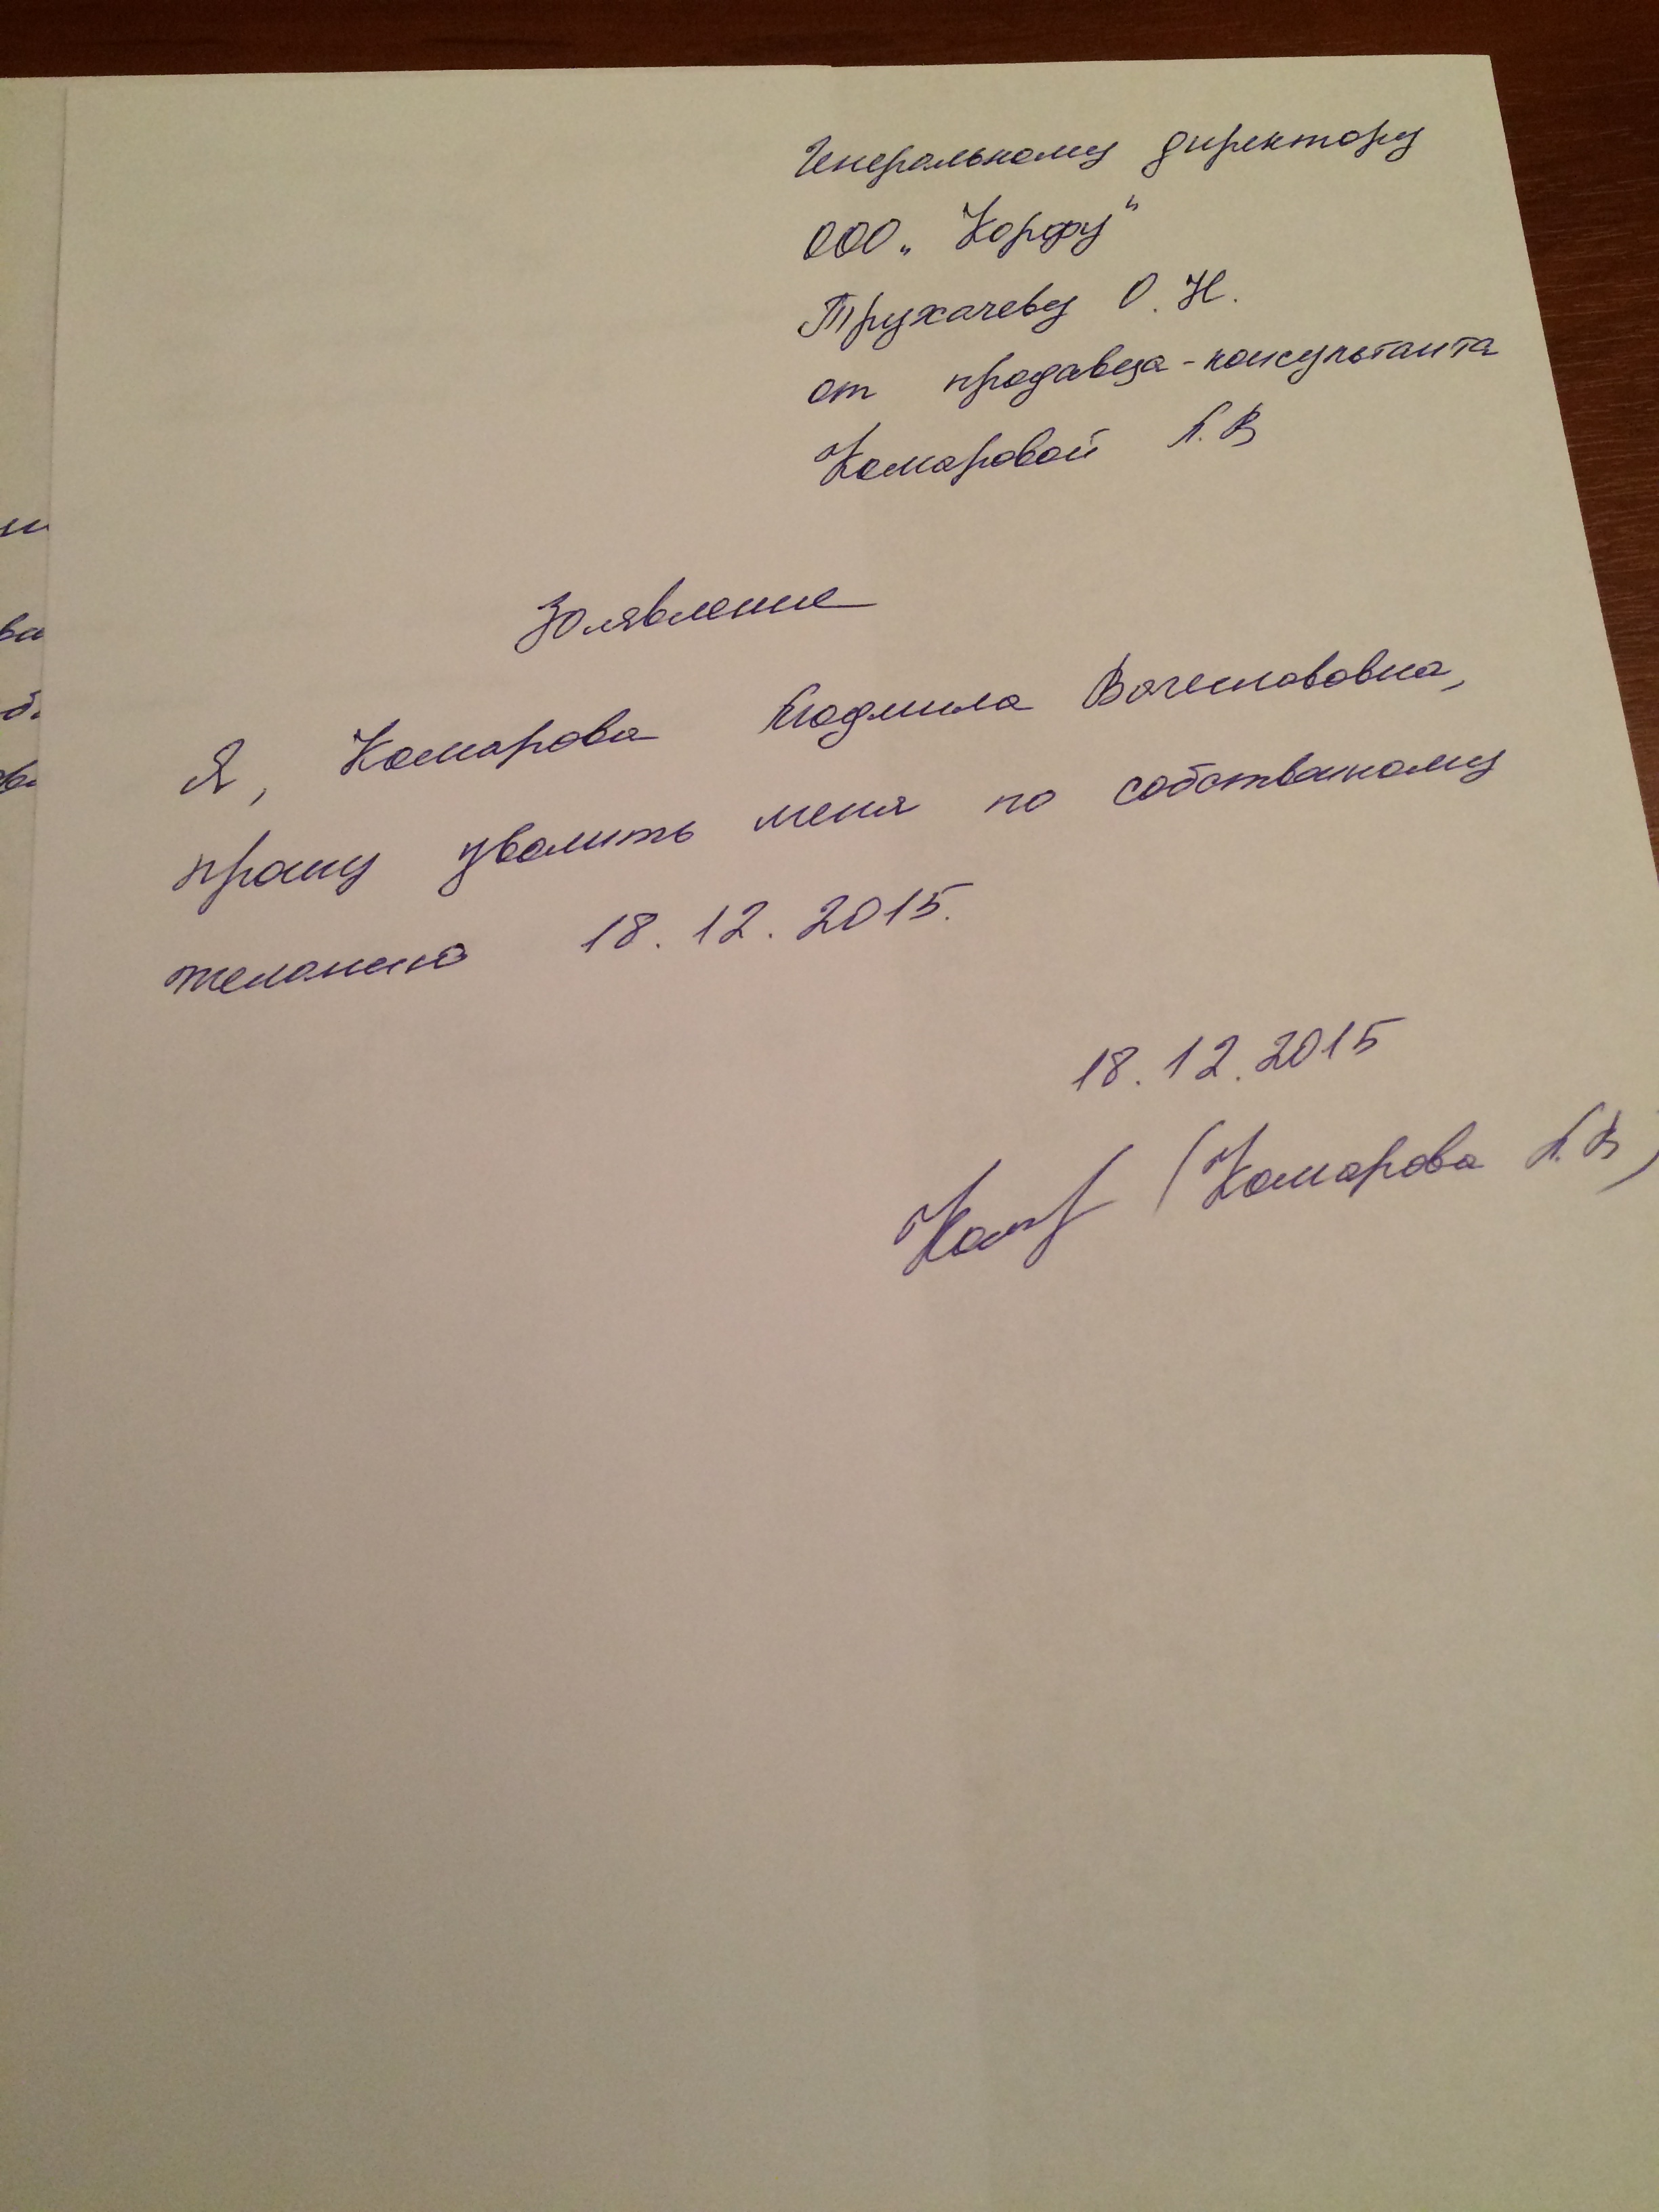 Генеральному директору
ООО „Корфу“
Трухачеву О. Н.
от продавца-консультанта
Комаровой Л. В
Заявление
Я, Комарова Людмила Вячеславовна,
прошу уволить меня по собственному
желанию 18. 12. 2015.
18. 12. 2015
(Комарова Л. В)